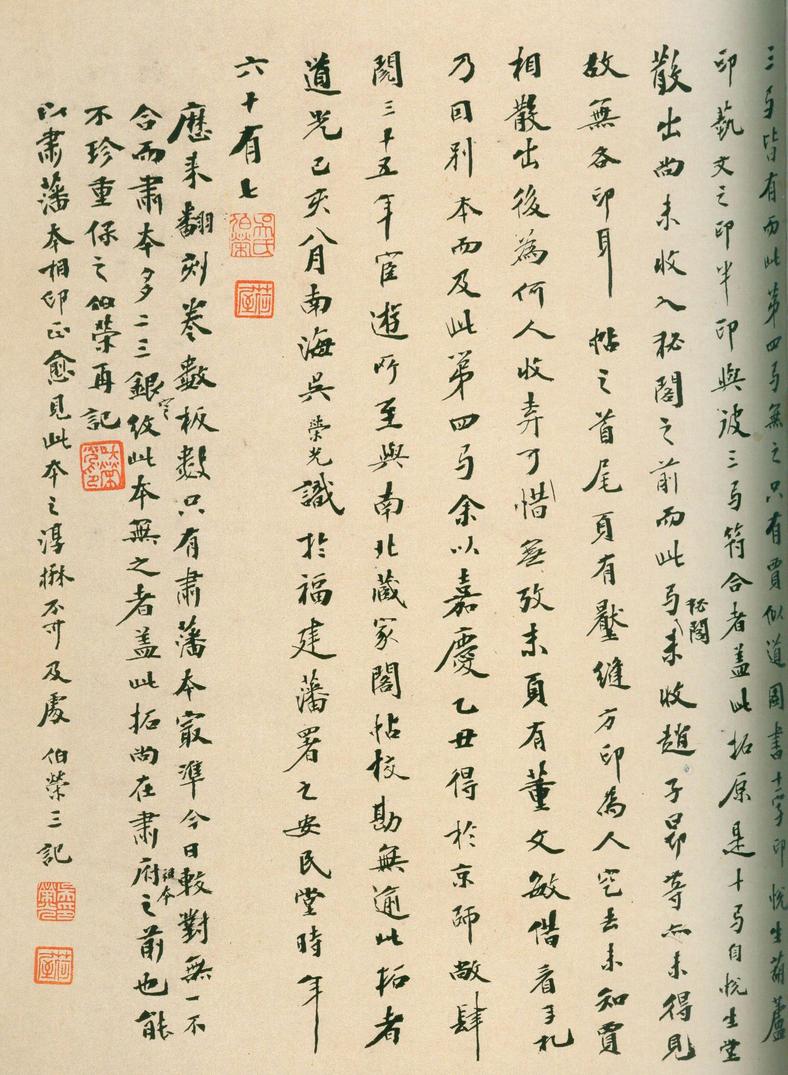 三卷皆有而此第四卷無之只有賈似道圖書十一字印悅生葫蘆
印藝文之印半印與彼三卷符合者蓋此拓原是十卷自悅生堂
散出尚未收入秘閣之前而此卷未收秘閣趙子昂等亦未得見
故無各印耳帖之首尾頁有壓縫方印為人空去未知賈
相散出後為何人收弆可惜無攷末頁有董文敏借看手札
乃因別本而及此第四卷余以嘉慶乙丑得於京師敝肆
閱三十五年宦遊所至與南北藏家閣帖校勘無逾此拓者
道光己亥八月南海吳榮光識於福建藩署之安民堂時年
六十有七
吳氏伯榮
荷屋
歷來翻刻卷數板數只有肅藩本最準今日較對無一不
合而肅本多二三銀錠紋此本無之者蓋此拓尚在肅府祖本之前也能
不珍重保之伯榮再記
以肅藩本相印正愈見此本之淳楙不可及處伯榮三記
荷屋